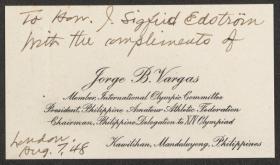 To Hon. J. Sigfrid Edström
With the compliments of
Jorge B. Vargas
Member, International Olympic Committee
President, Philippine Amateur Athletic Federation
Chairman, Philippine Delegation to XIV Olympiad
London.
Aug. 7, 48
Kawilihan, Mandaluyong, Philippines